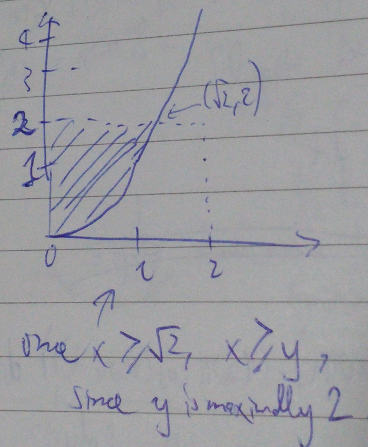 4
3
2
1
0
1
2
(√2, 2)
once x ≥ √2, x ≥ y,
since y is maximally 2